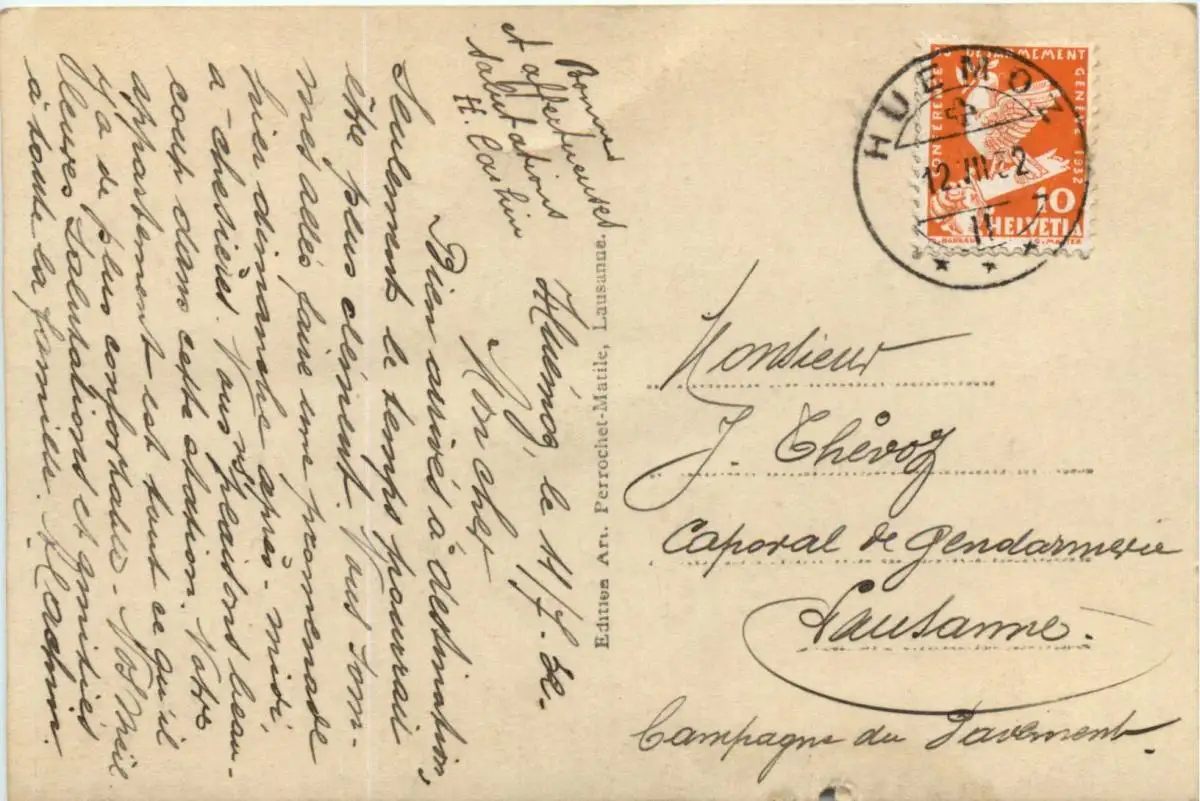 Huémoz, le 11/7. 32.
Mon chef
Bien arrivés à destination,
Seulement le temps pourrait
être plus clément. Nous som-
mes allés faire une promenade
hier dimanche après-midi,
a-chesières. Nous ns. plaisons beau-
coup dans cette station. Notre
appartement est tout ce qu'il
y a de plus confortable. Nos meil
leures Salutations et amitiés
à toute la famille.
Bonnes
et affectueuses
salutations
H.
Edition Art. Perrochet-Matile, Lausanne.
CONFERENCE DU DESARMEMENT GENÈVE 1932
10
HELVETIA
HUEMOZ
12.VII.32
11
Monsieur
J. Thévoz
Caporal de Gendarmerie
Lausanne.
Campagne du Pavement.